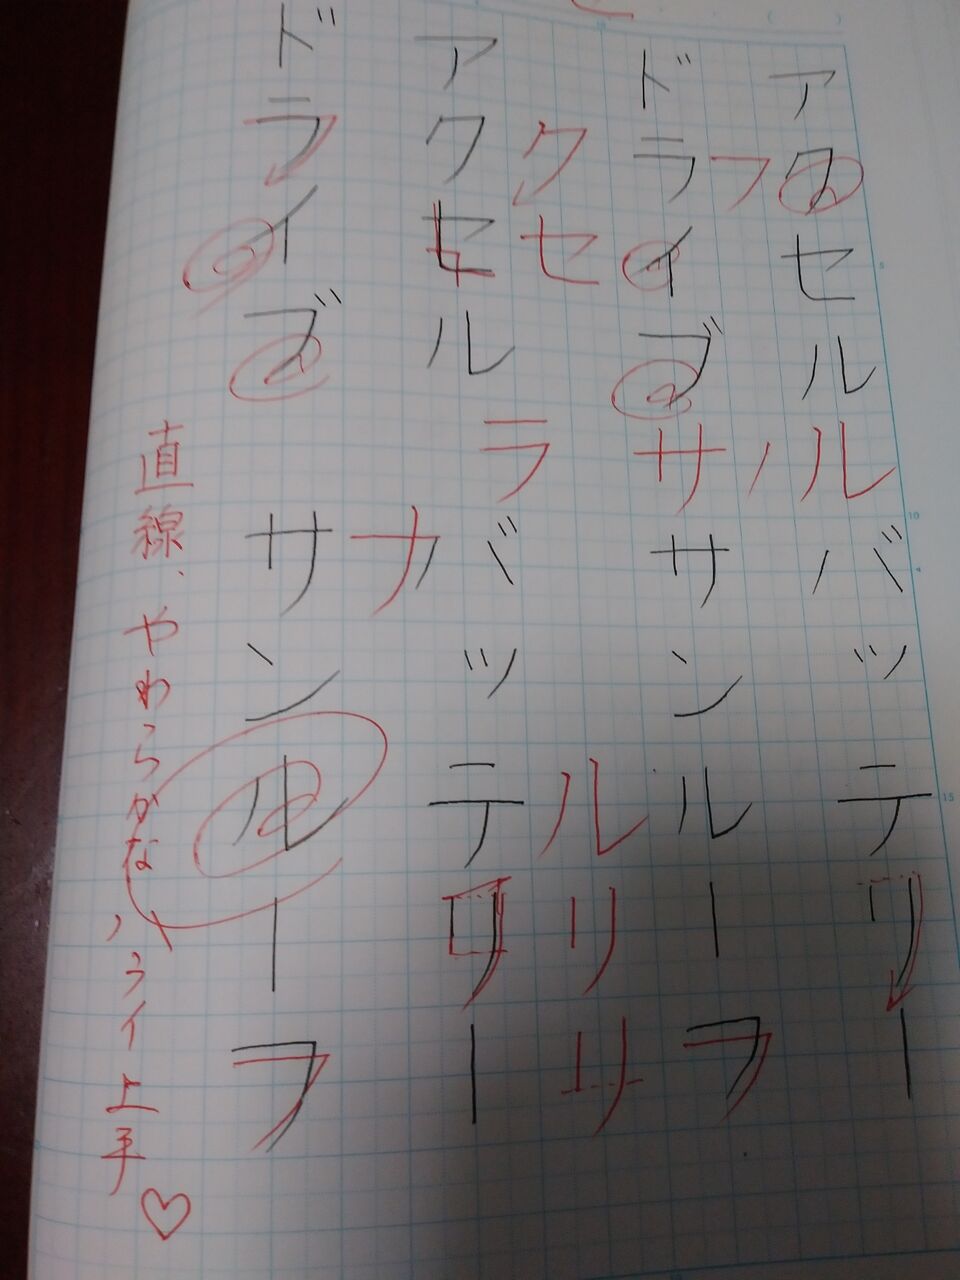 アクセル
バッテリー
ドライブ
サンルーフ
アクセル
バッテリー
ドライブ
サンルーフ
ク
セ
フ
ラ
サノル
ナ
ル
リ
リ
直線、やわらかなハライ上手♡